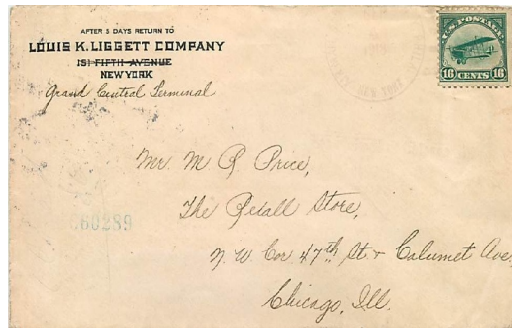 AFTER 5 DAYS RETURN TO
LOUIS K. LIGGETT COMPANY
151 FIFTH AVENUE
NEW YORK
Grand Central Terminal
U.S. POSTAGE
16 CENTS 16
NEW YORK
Mr. M R Price,
The Rexall Store,
N. W. Cor 47th St. & Calumet Ave
Chicago, Ill.
60289